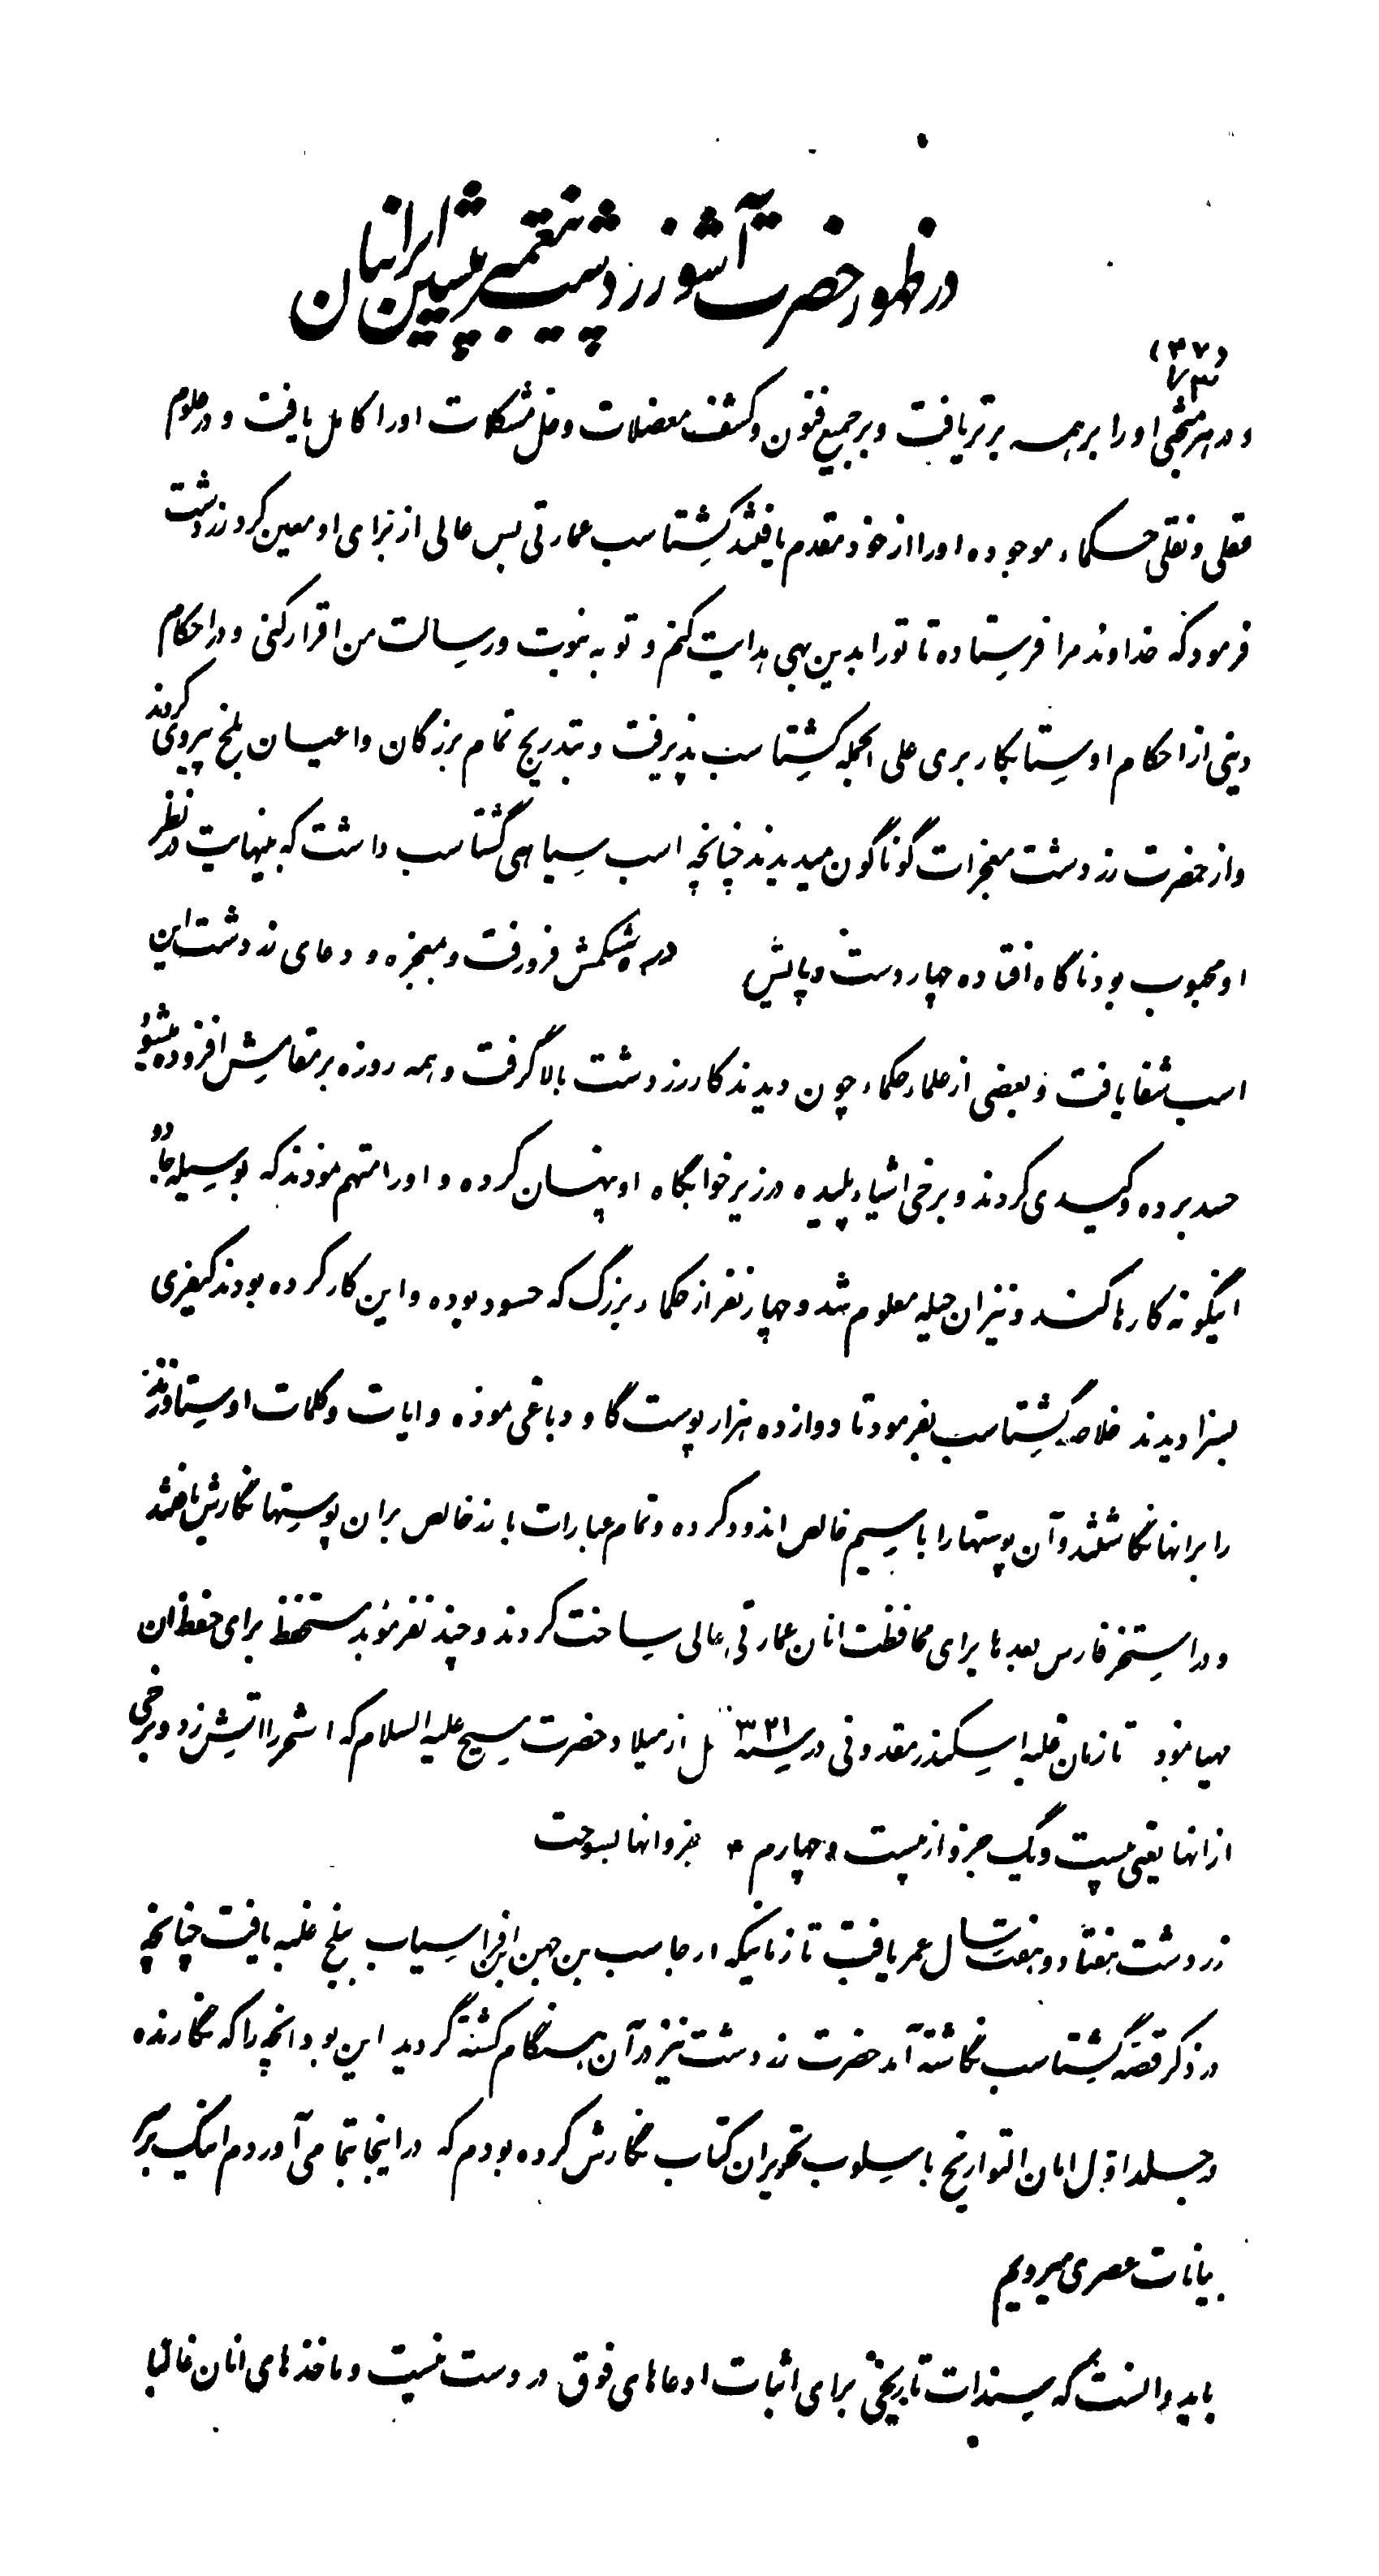 در ظهور حضرت آشو زردشت پیغمبر پیشین ایرانیان
(۳۷)
و در هر مبحثی او را بر همه برتر یافت و بر جمیع فنون و کشف معضلات و حل مشکلات او را کامل یافت و در علوم
عقلی و نقلی حکماء موجوده او را از خود مقدم یافتند گشتاسب عمارتی بس عالی از برای او معین کرد زردشت
فرمود که خداوند مرا فرستاده تا تو را بدین بهی هدایت کنم و تو به نبوت و رسالت من اقرار کنی و در احکام
دینی از احکام اوستا بکار بری علی الجمله گشتاسب پذیرفت و بتدریج تمام بزرگان و اعیان بلخ پیروی کردند
و از حضرت زردشت معجزات گوناگون میدیدند چنانچه اسب سیاهی گشتاسب داشت که بینهایت در نظر
او محبوب بود ناگاه افتاده چهار دست و پایش در شکمش فرو رفت و بمعجزه و دعای زردشت این
اسب شفا یافت و بعضی از علماء حکماء چون دیدند کار زردشت بالا گرفت و همه روزه بر مقامش افزوده میشود
حسد برده و کیدی کردند و برخی اشیاء پلیده در زیر خوابگاه او پنهان کرده و او را متهم نمودند که بوسیله جادو
اینگونه کارها کند و نیز ان حیله معلوم شد و چهار نفر از حکماء بزرگ که حسود بوده و این کار کرده بودند کیفری
بسزا دیدند خلاصه گشتاسب بفرمود تا دوازده هزار پوست گاو دباغی نموده و ایات و کلمات اوستا و زند
را برانها نگاشتند و آن پوستها را با سیم خالص اندود کرده و تمام عبارات با زر خالص بران پوستها نگارش یافتند
و در استخر فارس بعدها برای محافظت انان عمارتی عالی ساخت کردند و چند نفر موبد مستحفظ برای حفظ ان
مهیا نمود تا زمان غلبه اسکندر مقدونی در سنه ۳۳۱ قبل از میلاد حضرت مسیح علیه السلام که استخر را اتیش زد و برخی
از انها یعنی بیست و یک جزو از بیست و چهارم جزو انها بسوخت
زردشت هفتاد و هفت سال عمر یافت تا زمانیکه ارجاسب بن جهن ابن افراسیاب ببلخ غلبه یافت چنانچه
در ذکر قصه گشتاسب نگاشته آمد حضرت زردشت نیز در آن هنگام کشته گردید این بود انچه را که نگارنده
در جلد اول امان التواریخ باسلوب تحریر ان کتاب نگارش کرده بودم که در اینجا بتمامی آوردم اینک بر سر
بیانات عصری میرویم
باید دانست که سندات تاریخی برای اثبات ادعاهای فوق در دست نیست و ماخذهای انان غالبا